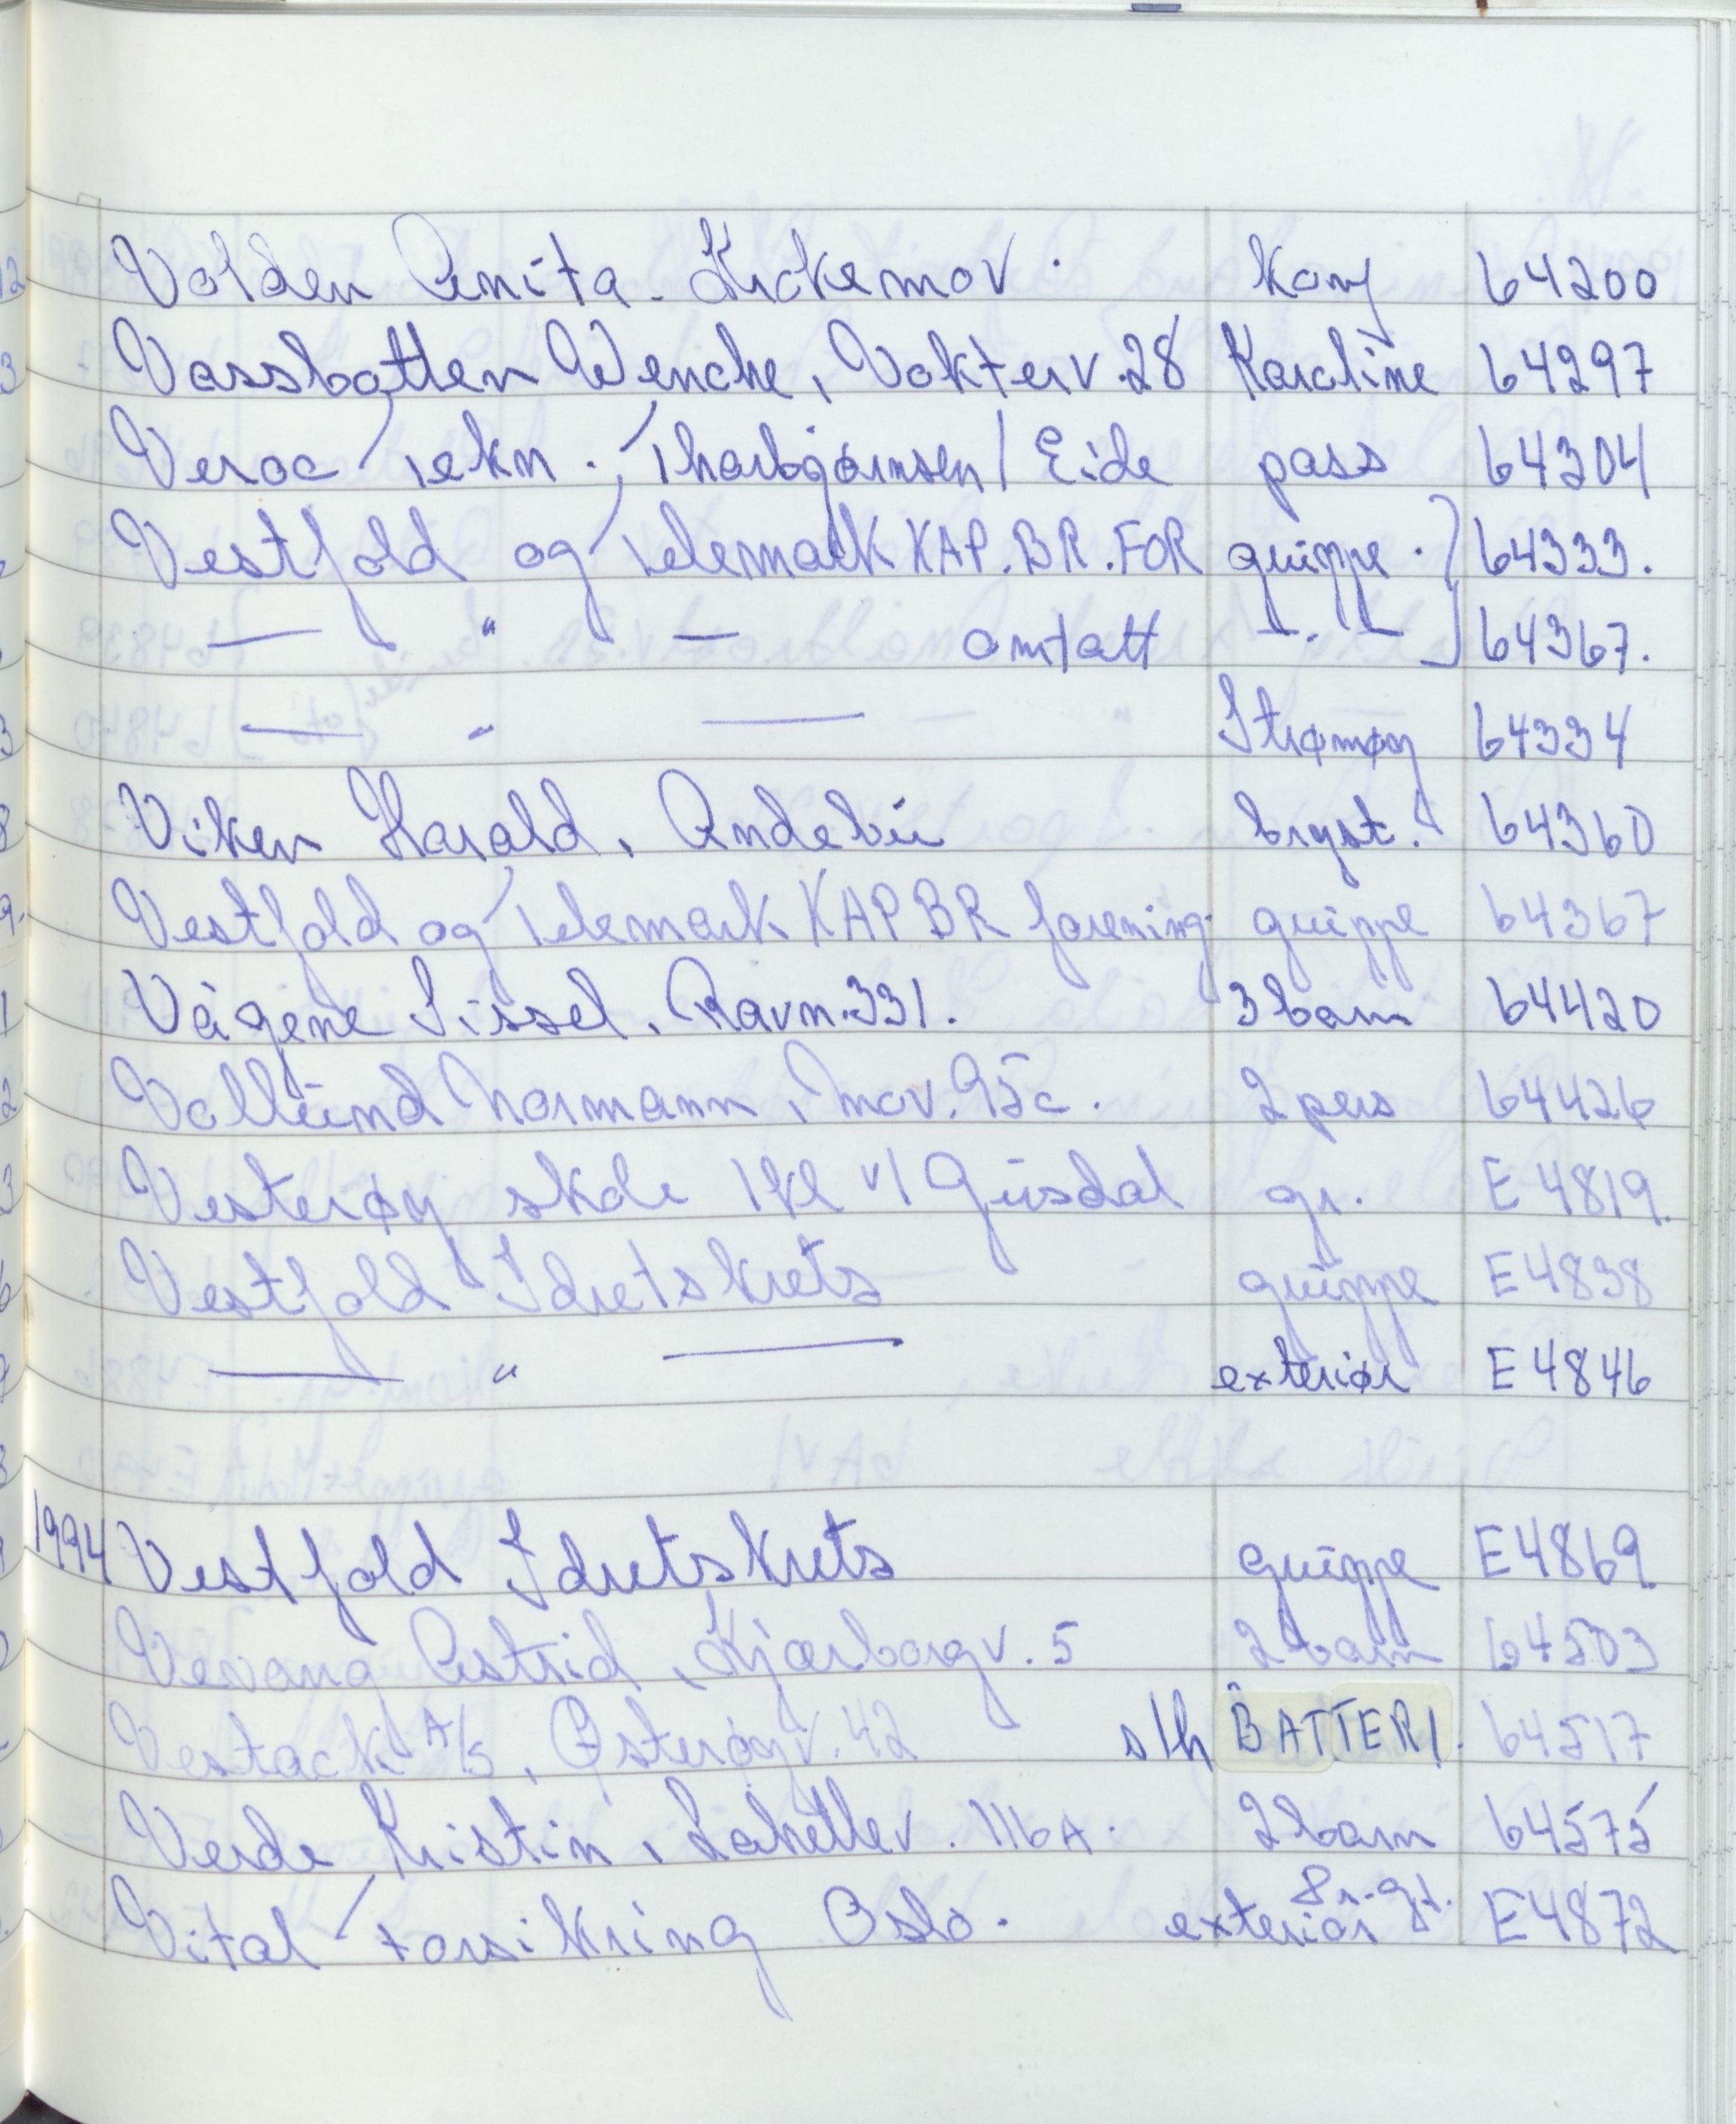 Volden Anita. Krokemov. Konf 64200
Vassbotten Wenche, Vokterv. 28 Karoline 64297
Veroc Tekn. Thorbjørnsen / Eide pass 64304
Vestfold og Telemark KAP. BR. FOR gruppe. 64333.
— " — omtatt — " — 64367.
— " — Strømøy 64334
Viken Harald, Andebu bryst. 64360
Vestfold og Telemark KAP BR forening. gruppe 64367
Vågene Sissel. Ravn. 331. 3 barn 64420
Vollund Normann, Mov. 95c. 2 pers 64426
Vesterøy skole 1 kl v/ Gusdal gr. E 4819.
Vestfold Idretskrets gruppe E 4838
— " — exteriør E 4846
1994 Vestfold Idretskrets gruppe E 4869.
Vevang Astrid, Kjærborgv. 5 2 barn 64503
Vestack A/S, Østerøyv. 42 s/h BATTERI. 64517
Verde Kristin, Lahellev. 116 A. 2 barn 64575
Vital Forsikring Oslo. exteriør E 4872